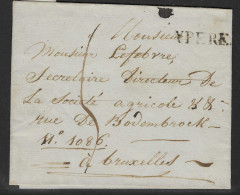 Monsieur
YPERN
Monsieur Lefebvre,
Secretaire Directeur de
La Société agricole &&
rue de Bodembroek
N.° 1086.
à Bruxelles